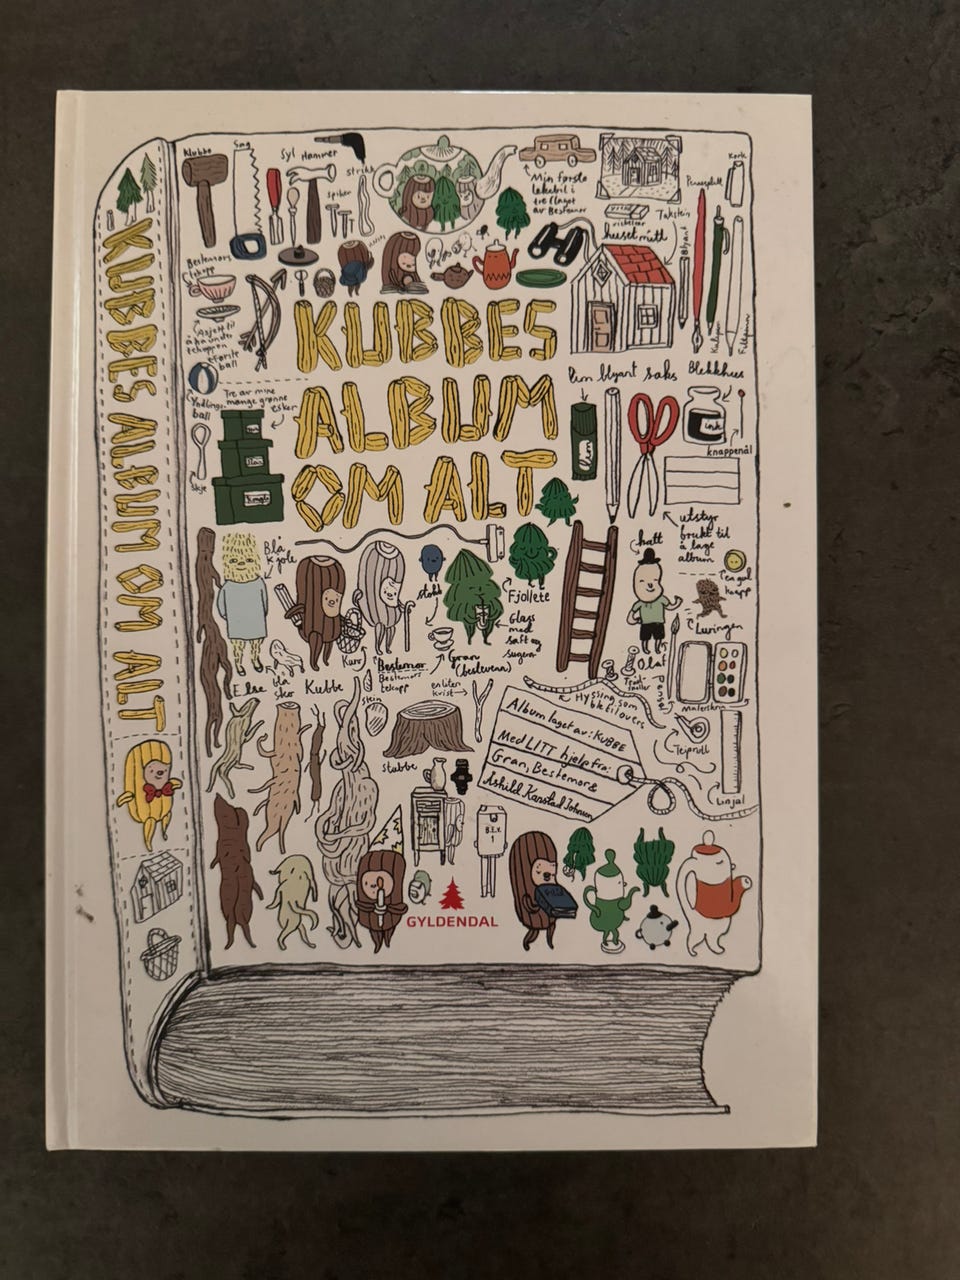 Klubbe
Sag
Syl
Hammer
Spiker
Strikk
Min første
lekebil i
tre (laget
av Bestemor
Kork
Viskelær
Takstein
huset mitt
Blyant
Fyllpenn
Bestemors
tekopp
Asjett til
å ha under
tekoppen
Første
ball
Yndlings-
ball
Tre av mine
mange grønne
esker
Skje
KUBBES
ALBUM
OM ALT
KUBBES ALBUM OM ALT
Lim
blyant
saks
Blekkhus
Lim
ink
knappenål
utstyr
brukt til
å lage
album
Blå
kjole
stokk
Fjollete
Glass
med
saft og
sugerør
Gran
(bestevenn)
hatt
en gul
knapp
Luringen
Olaf
Else
blå
sko
Kubbe
Kurv
Bestemor
Bestemors
tekopp
en liten
kvist
stein
Stubbe
Hyssing som
ble til overs
Malerskrin
Teiprull
Linjal
Album laget av: KUBBE
Med LITT hjelp fra:
Gran, Bestemor &
Åshild Kanstad Johnsen
B.I.V.
1
GYLDENDAL